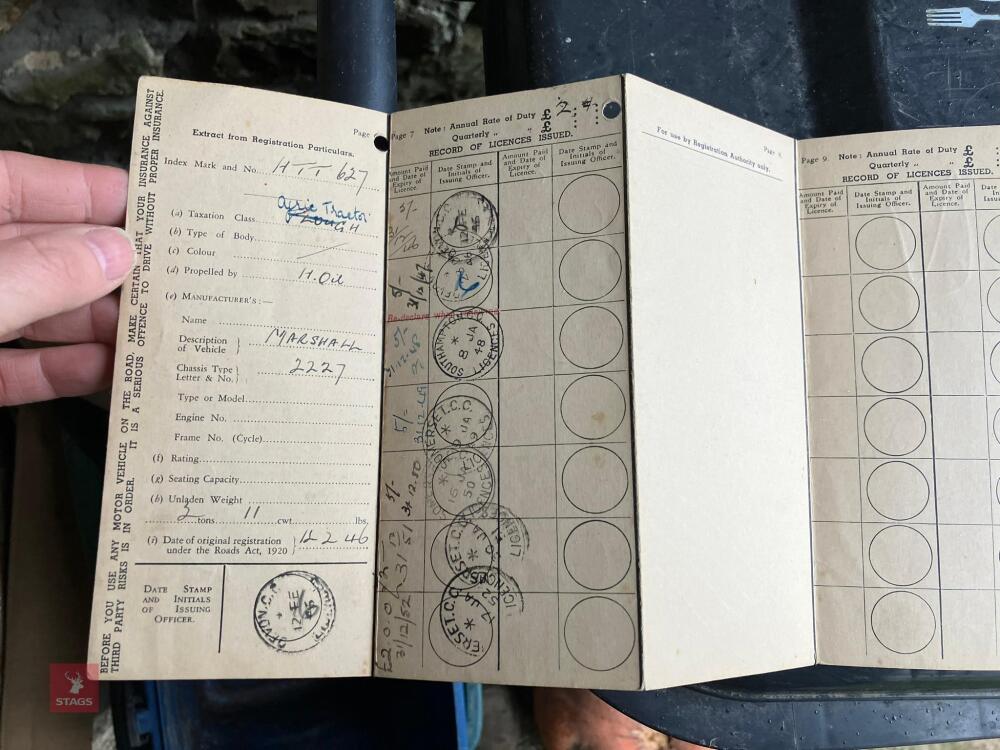 BEFORE YOU USE ANY MOTOR VEHICLE ON THE ROAD, MAKE CERTAIN THAT YOUR INSURANCE AGAINST
THIRD PARTY RISKS IS IN ORDER. IT IS A SERIOUS OFFENCE TO DRIVE WITHOUT PROPER INSURANCE.
Page
Extract from Registration Particulars.
Index Mark and No. HTT 627
(a) Taxation Class Agric Tractor
(b) Type of Body
(c) Colour
(d) Propelled by H. Oil
(e) MANUFACTURER'S:—
Name
Description of Vehicle } MARSHALL
Chassis Type Letter & No. } 2227
Type or Model
Engine No.
Frame No. (Cycle)
(f) Rating
(g) Seating Capacity
(h) Unladen Weight
3 tons 11 cwt. lbs.
(i) Date of original registration
under the Roads Act, 1920 } 12 2 46
DATE STAMP
AND INITIALS
OF ISSUING
OFFICER.
DEVON C.C.
12 FE
STAGS
Page 7 Note: Annual Rate of Duty £ 2
Quarterly „ „ £
RECORD OF LICENCES ISSUED.
Amount Paid and Date of Expiry of Licence.
Date Stamp and Initials of Issuing Officer.
Amount Paid and Date of Expiry of Licence.
Date Stamp and Initials of Issuing Officer.
5/-
31/12/46
5/-
31/12/47
5/-
31-12-48
SOUTHAMPTON C.C.
8 JA
48
LICENCES
5/-
31-12-49
ERSET.C.C.
JA
5/-
31-12-50
16 JA
50
31 12 51
ERSET.C.C.
JA
LICEN
£2 0 0
31/12/52
ERSET.C.C.
JA
52
For use by Registration Authority only.
Page 8.
Page 9. Note: Annual Rate of Duty £
Quarterly „ „ £
RECORD OF LICENCES ISSUED.
Amount Paid and Date of Expiry of Licence.
Date Stamp and Initials of Issuing Officer.
Amount Paid and Date of Expiry of Licence.